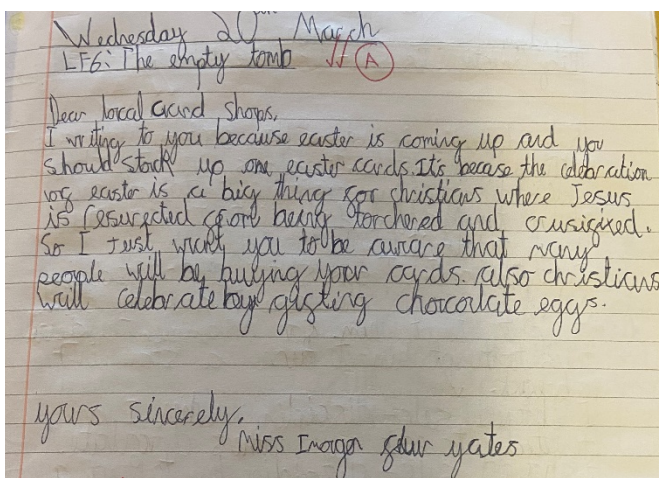 Wednesday 20th March
LF6: The empty tomb A
Dear local card shops,
I writing to you because easter is coming up and you
should stock up one easter cards. It's becase the celebration
of easter is a big thing for christians where Jesus
is resurected from being torchered and crusified.
So I Just want you to be aware that many
people will be buying your cards. also christians
will celebrate by gifting chorcorlate eggs.
yours sincerely,
Miss yates